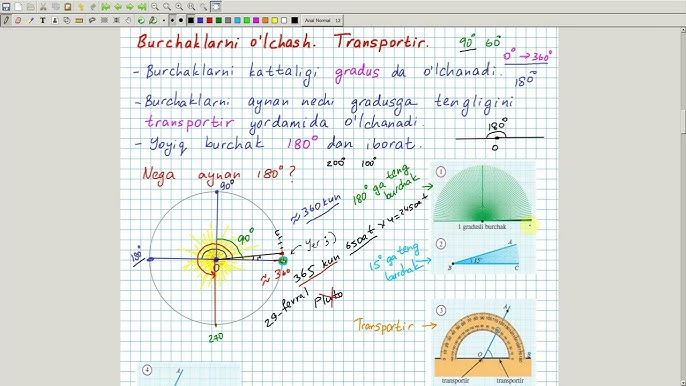 Arial Normal 12
Burchaklarni o'lchash. Transportir.
90° 60°
0° → 360°
180°
- Burchaklarni kattaligi gradus da o'lchanadi.
- Burchaklarni aynan nechi gradusga tengligini
transportir yordamida o'lchanadi.
- Yoyiq burchak 180° dan iborat.
180°
O
200° 100°
Nega aynan 180°?
90°
180°
270
O
90°
1°
≈ 360 kun
≈ 360
Yer :)
365 kun
650at × 4 = 2450at
29-fevral
Pluto
180° ga teng
burchak
1
1 gradusli burchak
15° ga teng
burchak
2
A
B
15°
C
Transportir
3
A
O
B
transportir
transportir
4
A